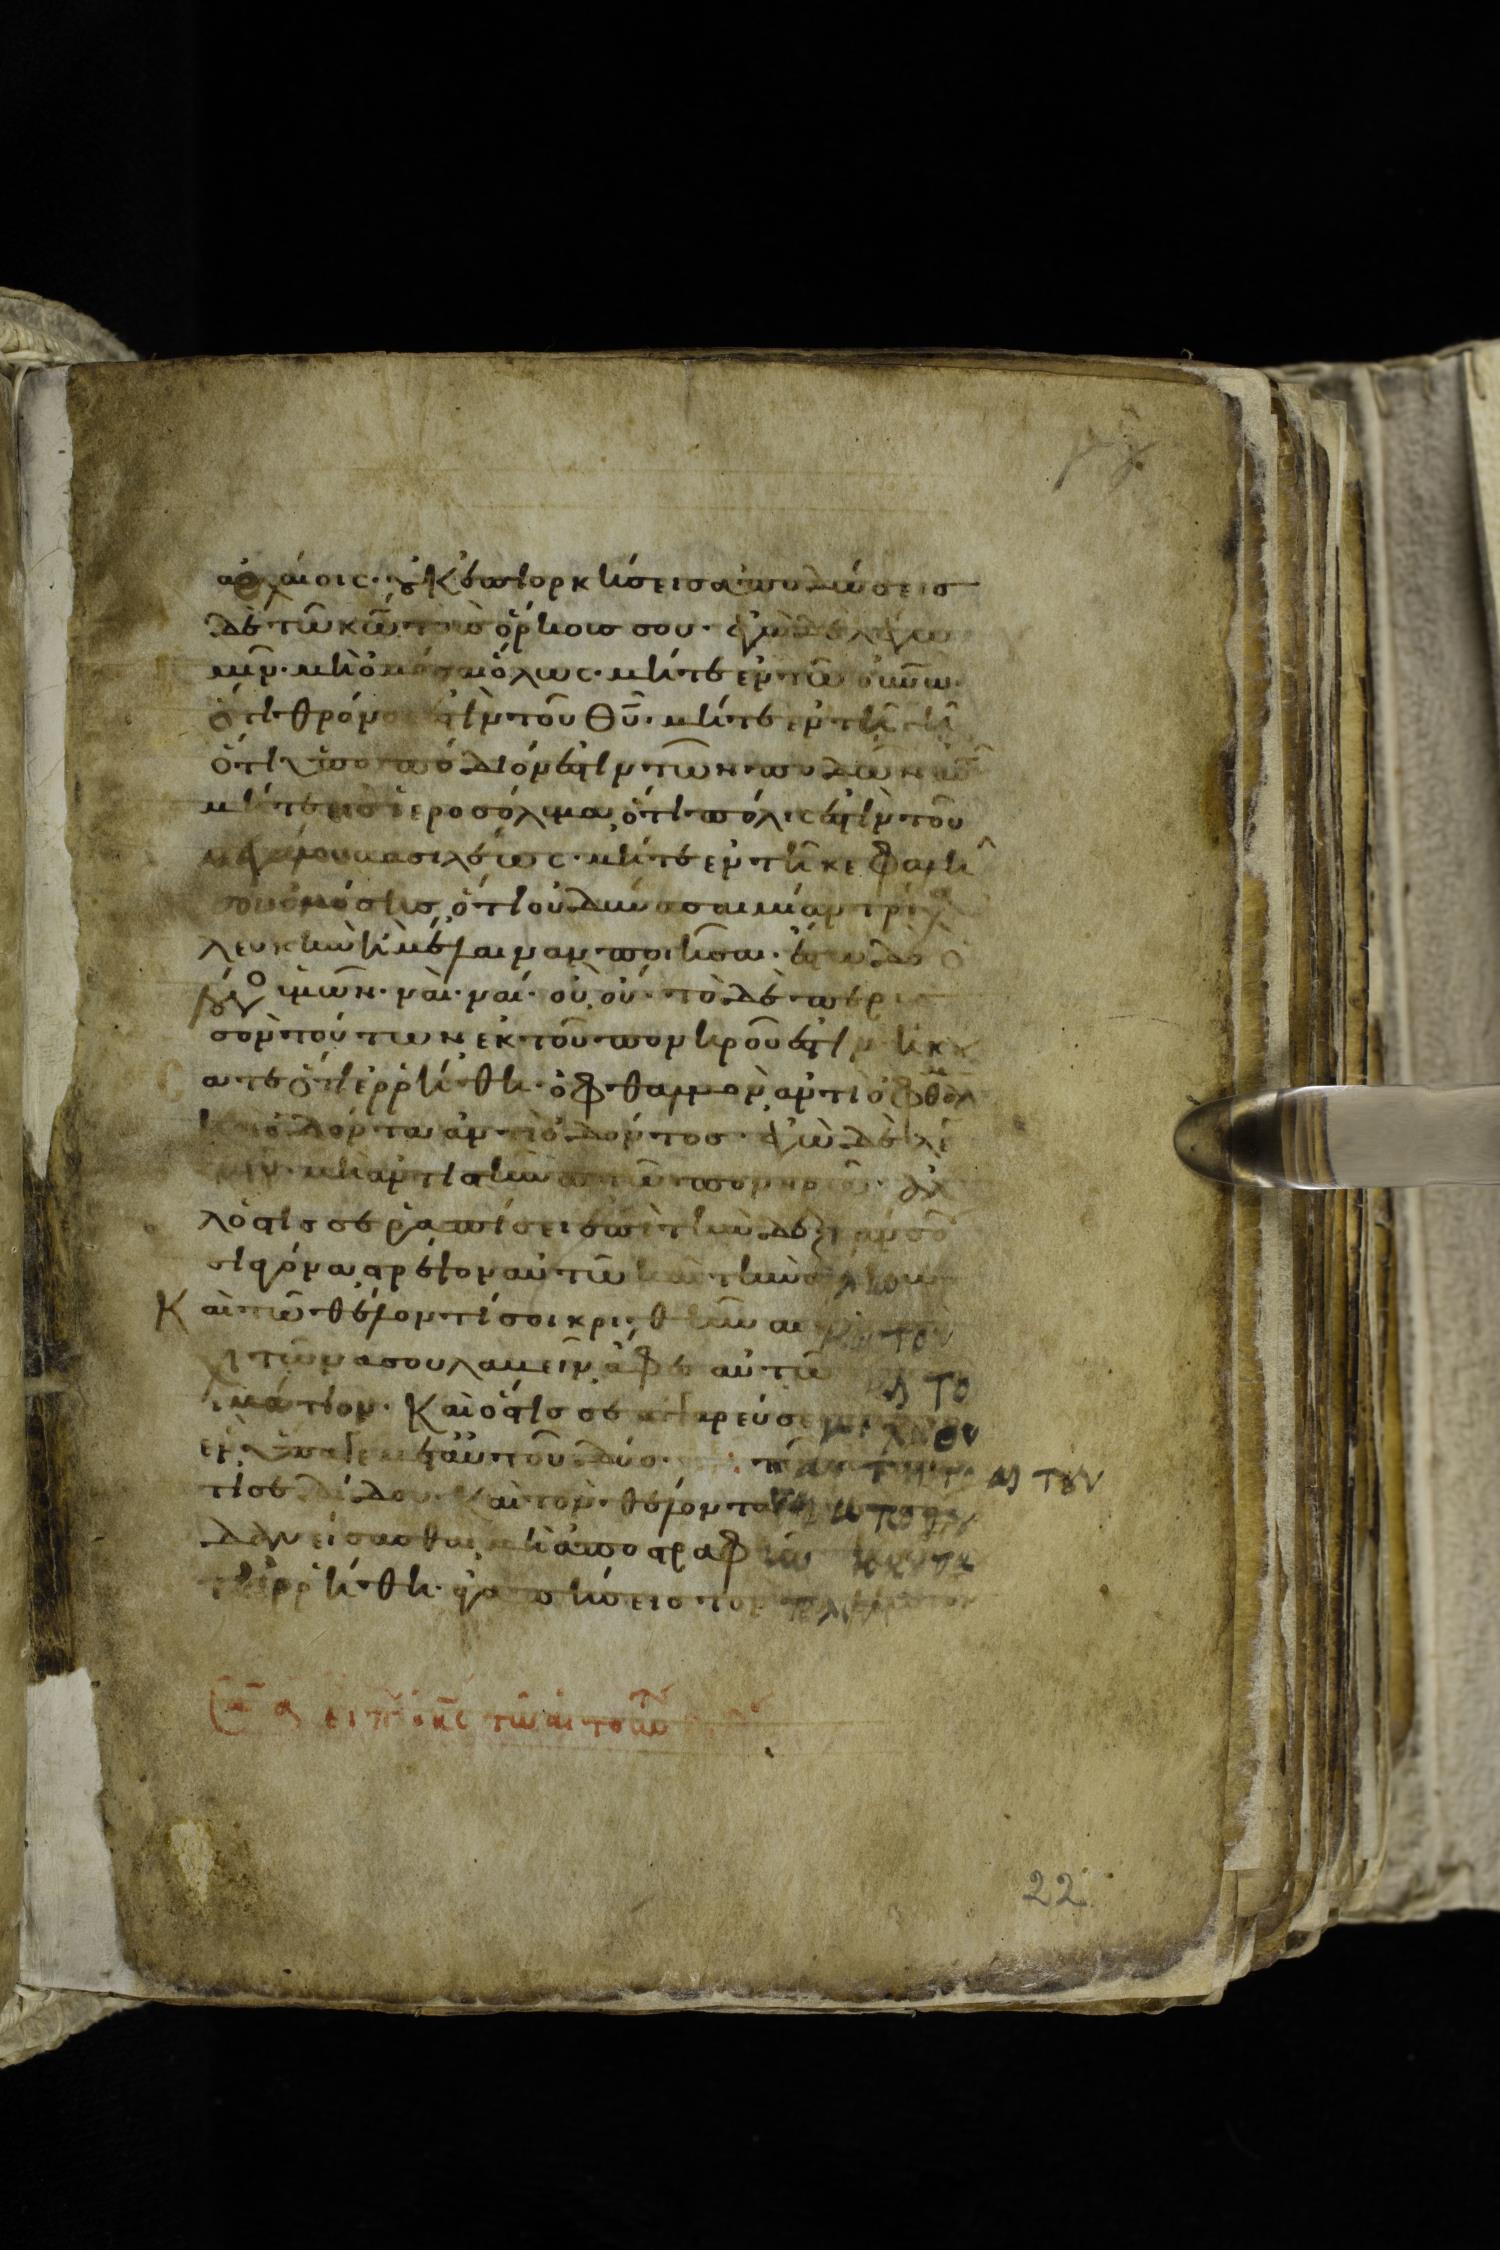 ἀρχαίοις· οὐκ ἐπιορκήσεις ἀποδώσεις
δὲ τῶ κῶ τοὺς ὅρκους σου· ἐγὼ δὲ λέγω
ὑμῖν· μὴ ὀμόσαι ὅλως· μήτε ἐν τῶ οὐνῶ·
ὅτι θρόνος ἐστὶν τοῦ θυ· μήτε ἐν τῆ γῆ
ὅτι ὑποπόδιόν ἐστιν τῶν ποδῶν αὐτ
μήτε εἰς ἱεροσόλυμα, ὅτι πόλις ἐστὶν τοῦ
μεγάλου βασιλέως· μήτε ἐν τῆ κεφαλῆ
σου ὀμόσης, ὅτι οὐ δύνασαι μίαν τρίχα
λευκὴν ἢ μέλαιναν ποιῆσαι· ἔστω δὲ ὁ
λόγο ὑμῶν· ναὶ ναί· οὒ οὔ· τὸ δὲ περισ
σὸν τούτων ἐκ τοῦ πονηροῦ ἐστιν· ἠκού
ατε ὅτι ἐρρήθη· ὀφθαλμὸν ἀντὶ ὀφθαλμ
καὶ ὀδόντα ἀντὶ ὀδόντος· ἐγὼ δὲ λέ
ὑμῖν· μὴ ἀντιστῆναι τῶ πονηρῶ· ἀλ
λ' ὅστις σε ῥαπίσει ἐπὶ τὴν δεξιάν σου
σιαγόνα, στρέψον αὐτῶ καὶ τὴν ἄλλην
Καὶ τῶ θέλοντί σοι κριθῆναι καὶ τὸν
χιτῶνα σου λαβεῖν, ἄφες αὐτῶ καὶ τὸ
ἱμάτιον· Καὶ ὅστις σε ἀγγαρεύσει μίλιον
ἓν, ὕπαγε μετ' αὐτοῦ δύο· τῶ αἰτοῦντι αἰτουν
τί σε δίδου· καὶ τὸν θέλοντα
δανείσασθαι μὴ ἀποστραφῆς ἠκούσατε
ὅτι ἐρρήθη· ἀγαπήσεις τὸν πλησίον
εἶπεν ὁ κς τῶ αἰτοῦν
22